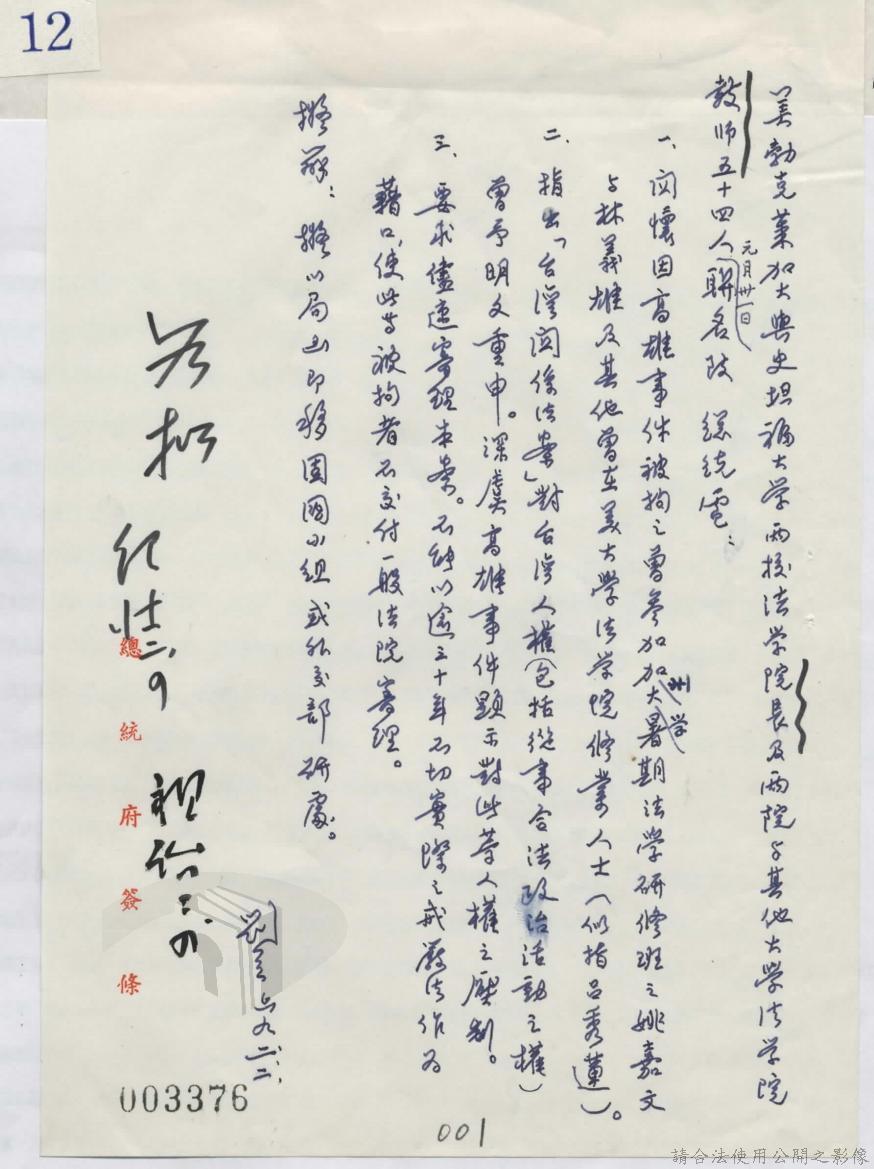 12
美勃克萊加大與史坦福大学兩校法学院長及兩院与其他大學法学院
教师五十四人聯名致 總統電：
元月卅一日
一、関懷因高雄事件被拘之曾参加加州大学暑期法学研修班之姚嘉文
与林義雄及其他曾在美大学法学院修業人士（似指吕秀蓮）。
二、指出「台灣関係法案」對台灣人權（包括從事合法政治活動之權）
曾予明文重申。深虞高雄事件顯示對此等人權之壓制。
三、要求儘速審理本案。不能以逾三十年不切實際之戒嚴法作為
藉口，使此等被拘者不交付一般法院審理。
擬辦：擬以局函即移固國小組或外交部研處。
上 九 二、二、
若拟
二、
總統府簽條
003376
001
請合法使用公開之影像